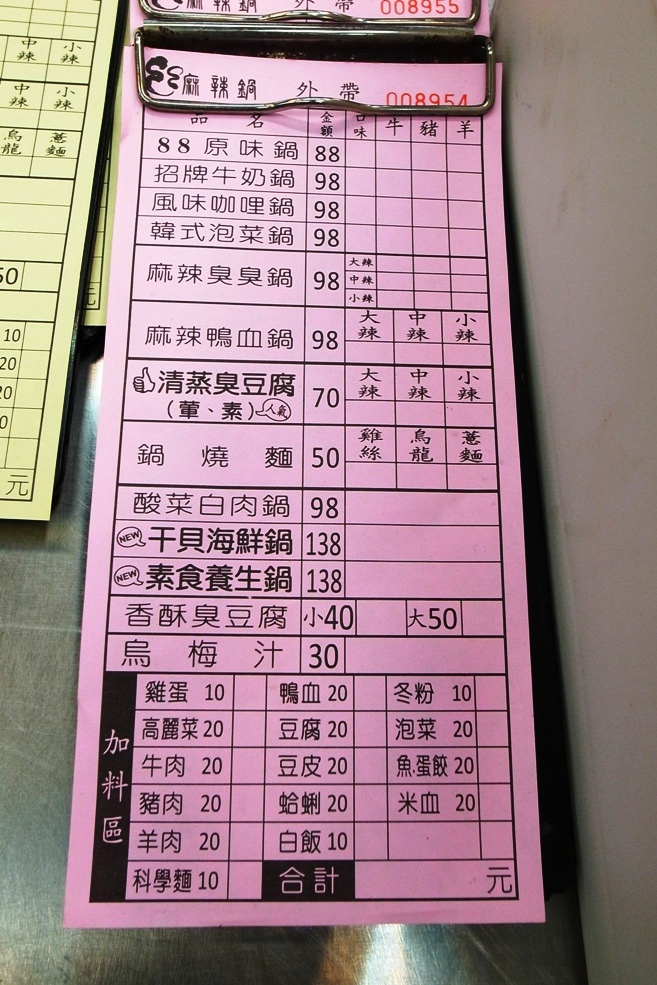 麻辣鍋 外帶 008955
麻辣鍋 外帶 008954
品名 金額 口味 牛 豬 羊
88原味鍋 88
招牌牛奶鍋 98
風味咖哩鍋 98
韓式泡菜鍋 98
麻辣臭臭鍋 98 大辣 中辣 小辣
麻辣鴨血鍋 98 大辣 中辣 小辣
清蒸臭豆腐(葷、素)人氣 70 大辣 中辣 小辣
鍋燒麵 50 雞絲 烏龍 薏麵
酸菜白肉鍋 98
NEW 干貝海鮮鍋 138
NEW 素食養生鍋 138
香酥臭豆腐 小40 大50
烏梅汁 30
加料區
雞蛋 10 鴨血 20 冬粉 10
高麗菜 20 豆腐 20 泡菜 20
牛肉 20 豆皮 20 魚.蛋餃 20
豬肉 20 蛤蜊 20 米血 20
羊肉 20 白飯 10
科學麵 10 合計 元
中辣 小辣
中辣 小辣
烏龍 薏麵
50
10
20
20
0
元
元